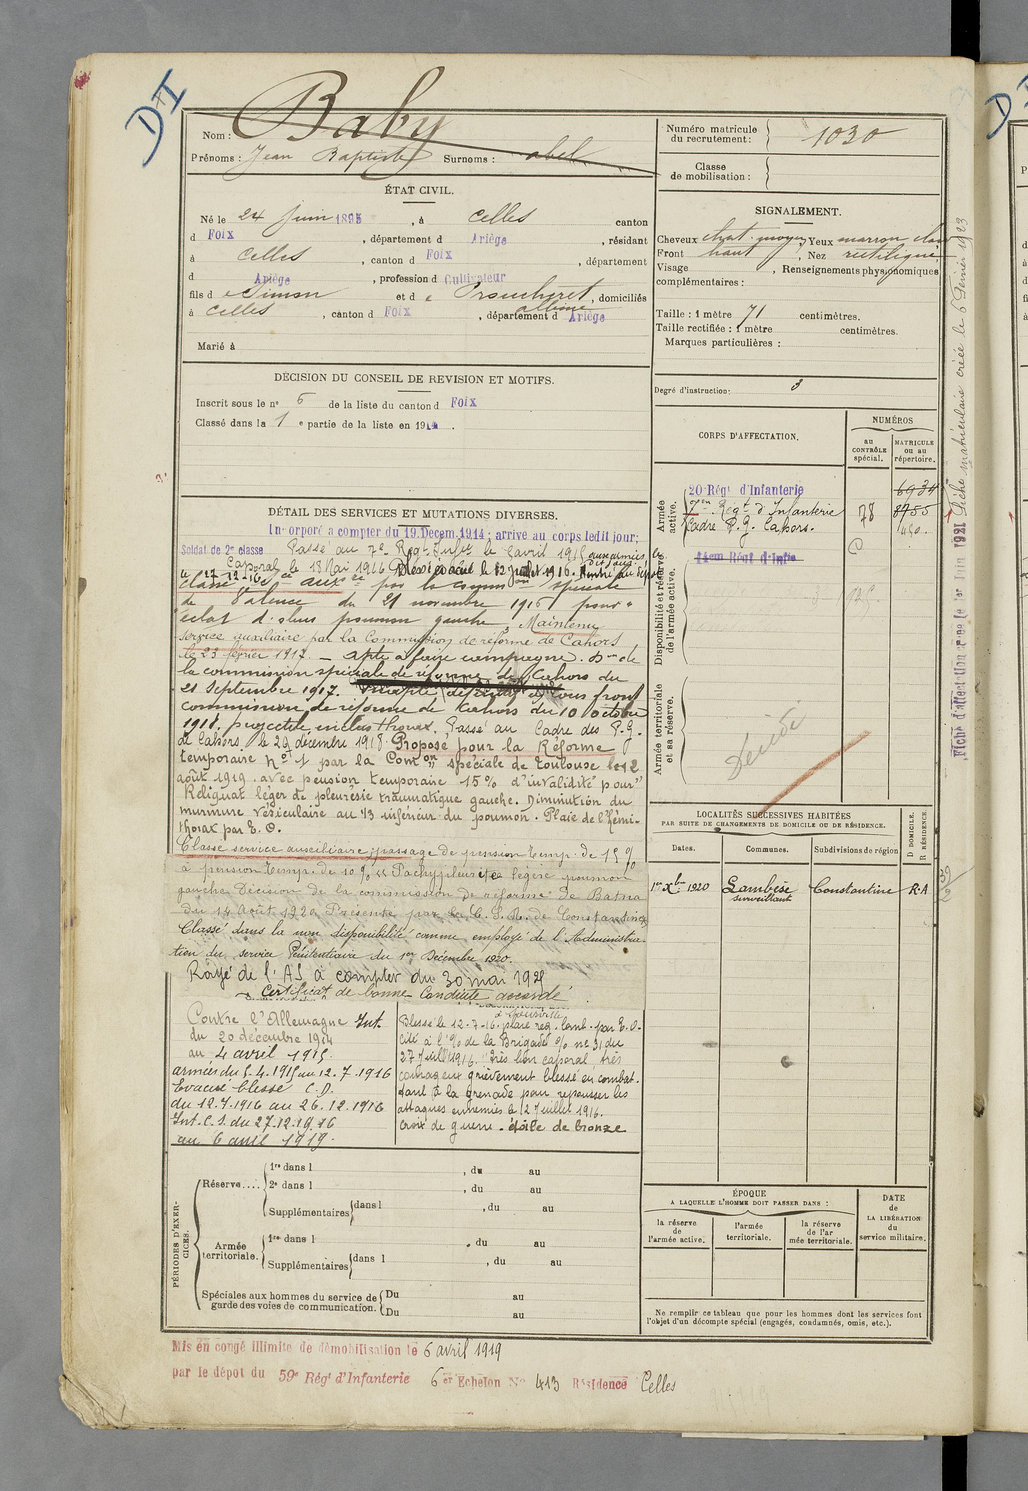 DI
Nom : Baby
Prénoms : Jean Baptiste Surnoms : abel
Numéro matricule du recrutement : 1030
Classe de mobilisation :
ÉTAT CIVIL.
Né le 24 Juin 1895, à Celles canton
d Foix, département d Ariège, résidant
à Celles, canton d Foix, département
d Ariège, profession d Cultivateur
fils d e Simon et d e albine, domiciliés
à Celles, canton d Foix, département d Ariège
Marié à
SIGNALEMENT.
Cheveux chat. moyen Yeux marron clair
Front haut, Nez rectiligne
Visage, Renseignements physionomiques
complémentaires :
Taille : 1 mètre 71 centimètres.
Taille rectifiée : 1 mètre centimètres.
Marques particulières :
Degré d'instruction : 3
DÉCISION DU CONSEIL DE REVISION ET MOTIFS.
Inscrit sous le n° 5 de la liste du canton d Foix
Classé dans la 1 e partie de la liste en 191
DÉTAIL DES SERVICES ET MUTATIONS DIVERSES.
Incorporé à compter du 19 Décem. 1914 ; arrivé au corps ledit jour ;
Soldat de 2e classe Passé au 7e Régt Inf. le 5 avril 1915 aux armées
Caporal le 18 Mai 1916 Blessé évacué le 12 Juillet 1916. Rentré au dépôt
le 27-12-16 classé aux re par la common spéciale
de Valence du 21 novembre 1916 pour "
éclat d'obus poumon gauche " Maintenu
service auxiliaire par la Commission de réforme de Cahors
le 23 février 1917. — apte à faire campagne. Don de
la commission spéciale de réforme de Cahors du
21 Septembre 1917. Inapte définitif tous front
commission de réforme de Cahors du 10 Octobre
1918. projectile inclus thorax. Passé au Cadre des P.G.
de Cahors, le 29 décembre 1918. Proposé pour la Réforme
temporaire n° 1 par la Comon spéciale de Toulouse le 12
août 1919. avec pension temporaire 15% d'invalidité pour "
Reliquat léger de pleurésie traumatique gauche. Diminution du
murmure vésiculaire au 1/3 inférieur du poumon. Plaie de l'hémi-
thorax par E.O.
Classé service auxiliaire, passage de pension temp. de 15 %
à pension temp. de 10 % " Pachypleurite légère poumon
gauche" Décision de la commission de réforme de Batna
du 14 Août 1920 Présenté par la C.S.R. de Constantine
Classé dans la non disponibilité comme employé de l'Administra-
tion du service Pénitentiaire du 1er Décembre 1920.
Rayé de l'AS à compter du 30 mai 1921
Certificat de bonne Conduite accordé
Contre l'Allemagne Int.
du 20 décembre 1914
au 4 avril 1915.
armées du 5.4.1915 au 12.7.1916
Evacué blessé C.D.
du 12.7.1916 au 26.12.1916
Int. C.S. du 27.12.1916
au 6 avril 1919.
Blessé le 12-7-16. plaie reg. lomb. par E.O.
cité à l'% de la Brigade % n° 31 du
27 juillet 1916. "Très bon caporal, très
courageux grièvement blessé en combat-
tant à la grenade pour repousser les
attaques ennemies le 12 Juillet 1916.
Croix de guerre - étoile de bronze
CORPS D'AFFECTATION.
NUMÉROS
au CONTRÔLE spécial.
MATRICULE ou au répertoire.
Armée active.
20 Régt d'Infanterie 6934
7en Régt d'Infanterie 78 8755
Cadre P.G. Cahors.
Disponibilité et réserve de l'armée active.
14em Régt d'Infie
Armée territoriale et sa réserve.
Fiche matriculaire créée le 6 Février 1923
Fiche d'affectation créée le 1er Juin 1921
LOCALITÉS SUCCESSIVES HABITÉES
PAR SUITE DE CHANGEMENTS DE DOMICILE OU DE RÉSIDENCE.
Dates. Communes. Subdivisions de région. D DOMICILE. R RÉSIDENCE
1er Xbre 1920 Lambèse surveillant Constantine R.A
ÉPOQUE
A LAQUELLE L'HOMME DOIT PASSER DANS :
la réserve de l'armée active.
l'armée territoriale.
la réserve de l'armée territoriale.
DATE de LA LIBÉRATION du service militaire.
Ne remplir ce tableau que pour les hommes dont les services font
l'objet d'un décompte spécial (engagés, condamnés, omis, etc.).
PÉRIODES D'EXERCICES.
Réserve....
1re dans l , du au
2e dans l , du au
Supplémentaires dans l , du au
Armée territoriale.
1re dans l , du au
Supplémentaires dans l , du au
Spéciales aux hommes du service de garde des voies de communication.
Du au
Du au
Mis en congé illimité de démobilisation le 6 avril 1919
par le dépôt du 59e Régt d'Infanterie 6 er Echelon N° 413 Résidence Celles